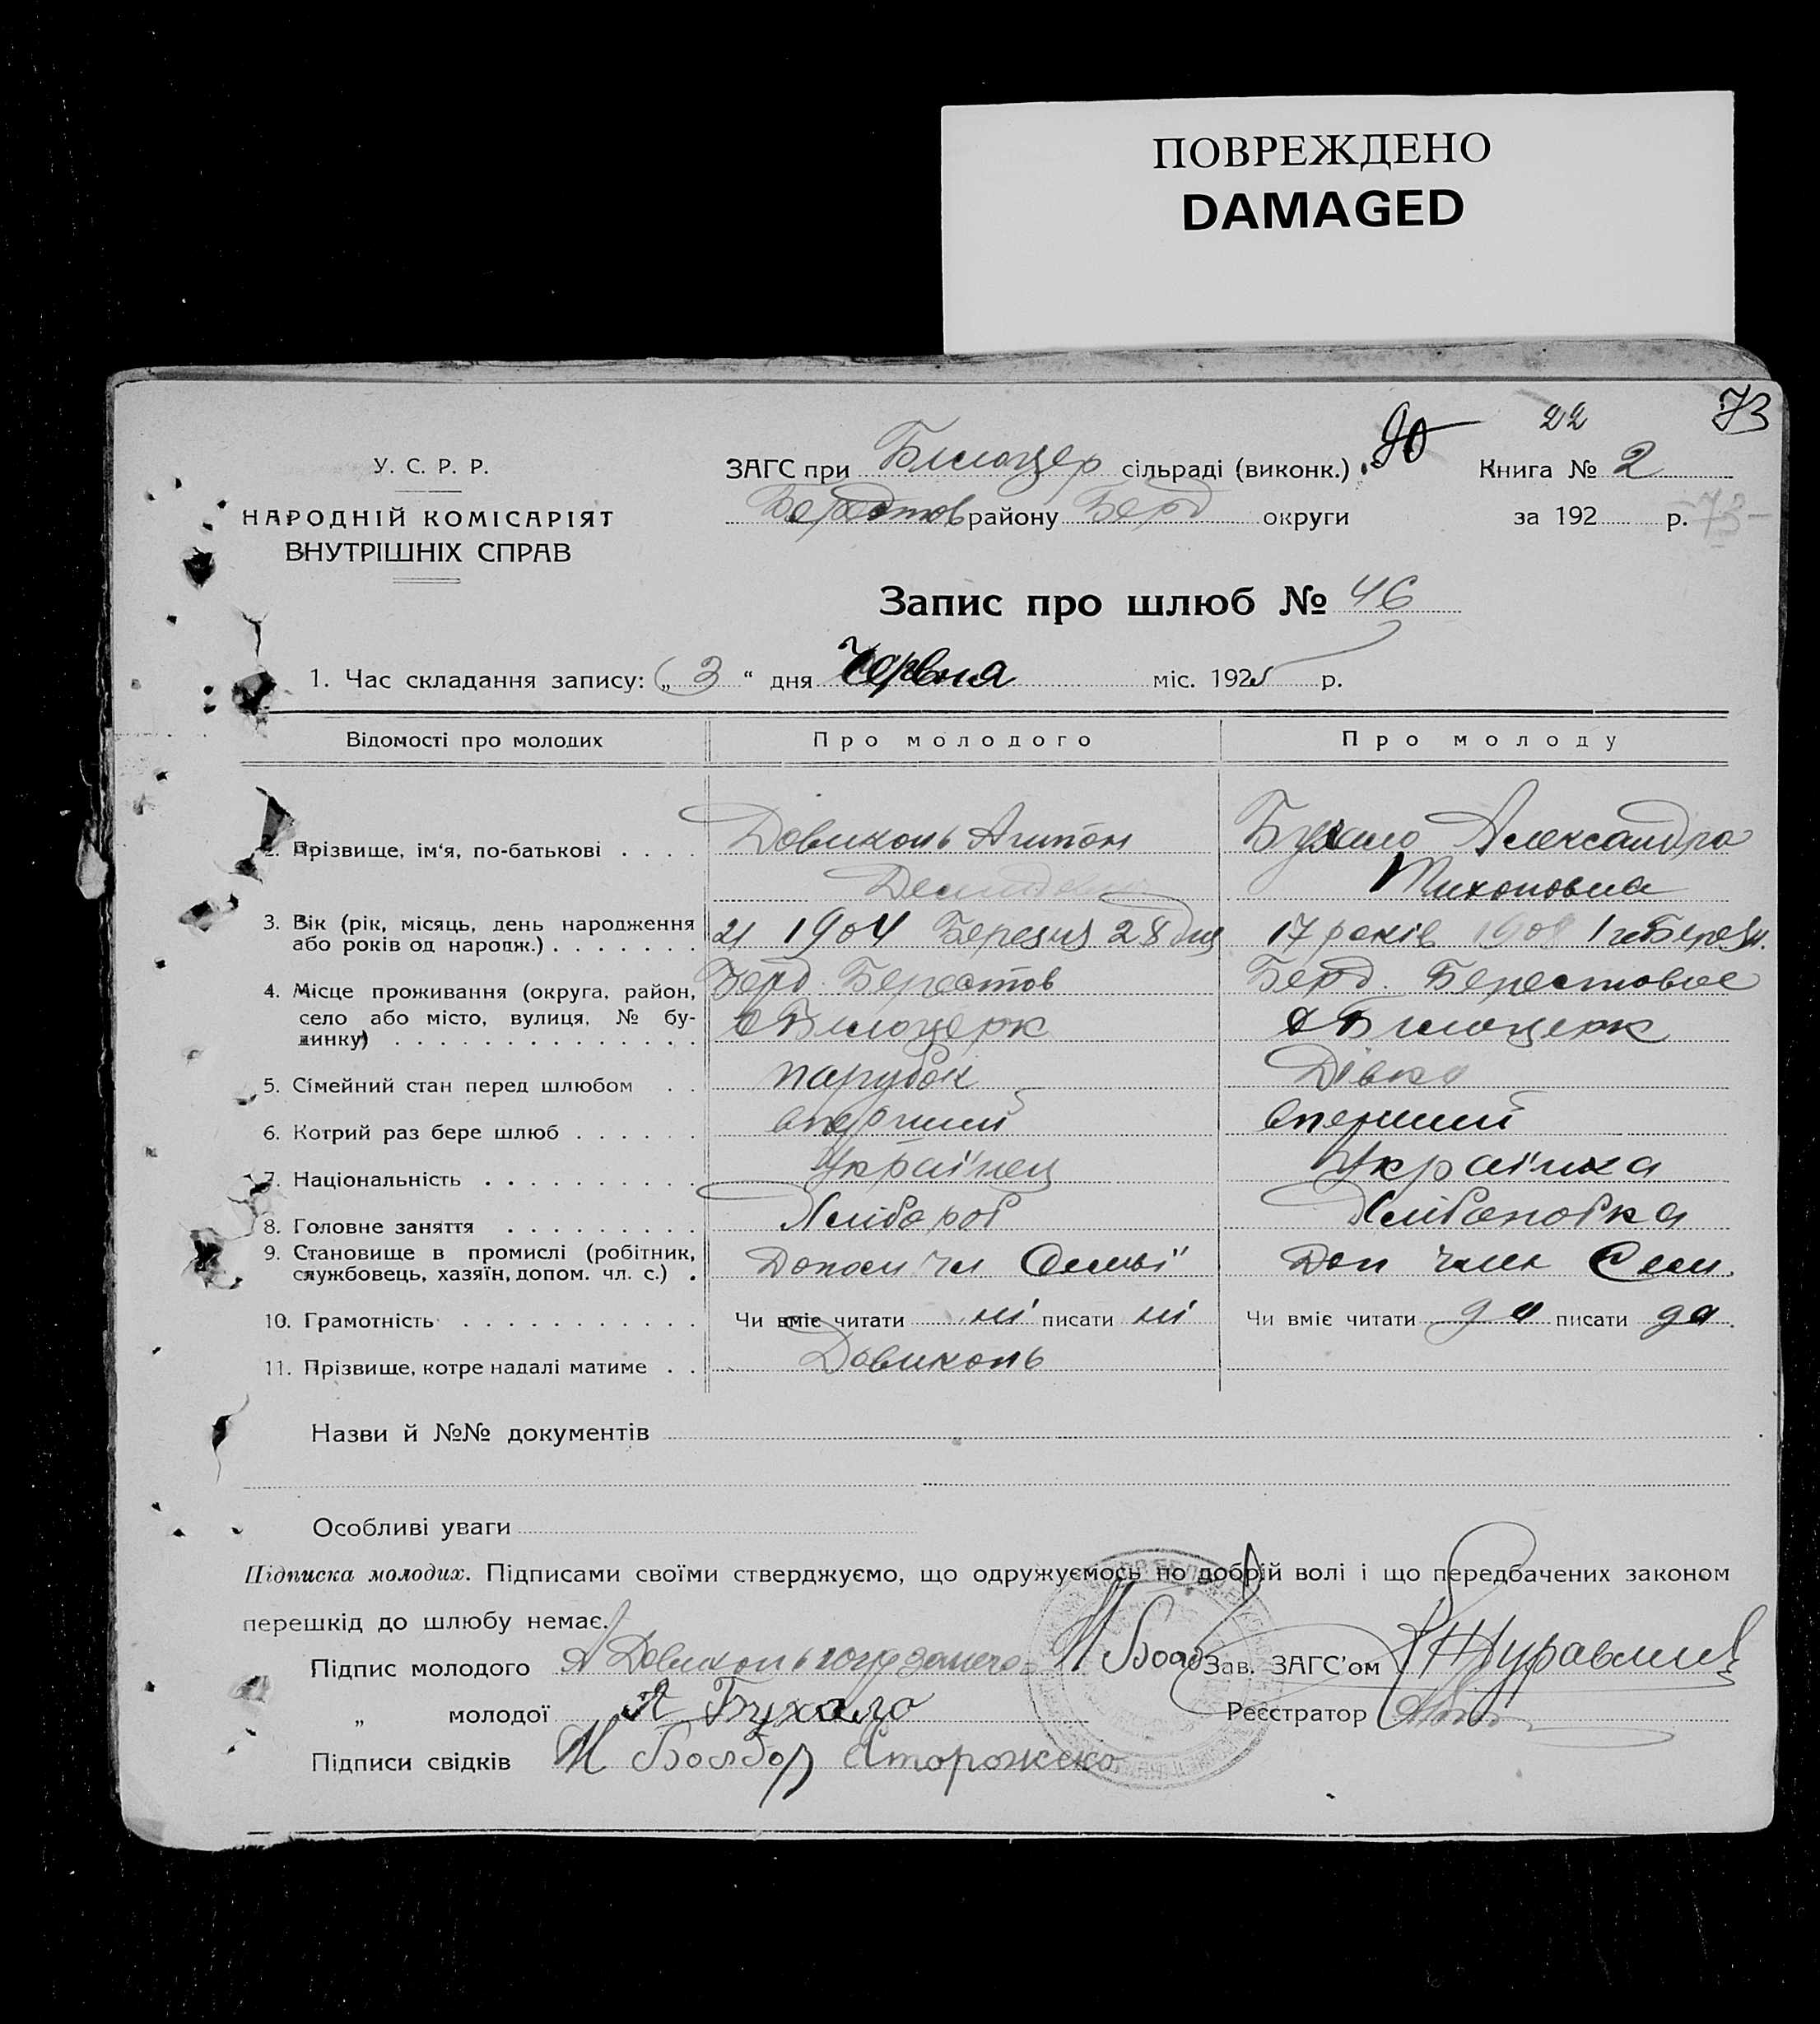 ПОВРЕЖДЕНО
DAMAGED
73
22
90
У. С. Р. Р.
НАРОДНІЙ КОМІСАРІЯТ
ВНУТРІШНІХ СПРАВ
ЗАГС при Билоцер сільраді (виконк.) Книга № 2
Берестов району Берд округи за 192 р. 73
Запис про шлюб № 46
1. Час складання запису: „ 3 “ дня Червня міс. 1925 р.
Відомості про молодих Про молодого Про молоду
2. Прізвище, ім'я, по-батькові . . . . Довиконь Агипон Бухало Александра
Тихоновна
3. Вік (рік, місяць, день народження 21 1904 Березня 28 дня 17 років 1908 1го Березн.
або років од народж.) . . . . . . .
4. Місце проживання (округа, район, Берд. Берестов Берд. Берестовое
село або місто, вулиця, № бу- с Билоцерк с Билоцерк
динку) . . . . . . . . . . . . . .
5. Сімейний стан перед шлюбом . . парубок Дівка
6. Котрий раз бере шлюб . . . . . . вперший вперший
7. Національність . . . . . . . . . . Українец Українка
8. Головне заняття . . . . . . . . . Хлібороб Хліборобка
9. Становище в промислі (робітник, Допом чл Семьї Доп член Сем.
службовець, хазяїн, допом. чл. с.) .
10. Грамотність . . . . . . . . . . . Чи вміє читати ні писати ні Чи вміє читати да писати да.
11. Прізвище, котре надалі матиме . . Довиконь
Назви й №№ документів
Особливі уваги
Підписка молодих. Підписами своїми стверджуємо, що одружуємось по добрій волі і що передбачених законом
перешкід до шлюбу немає.
Підпис молодого А Довиконь Зав. ЗАГС'ом Журавлив
„ молодої А Бухало Реєстратор
Підписи свідків Сторожеко